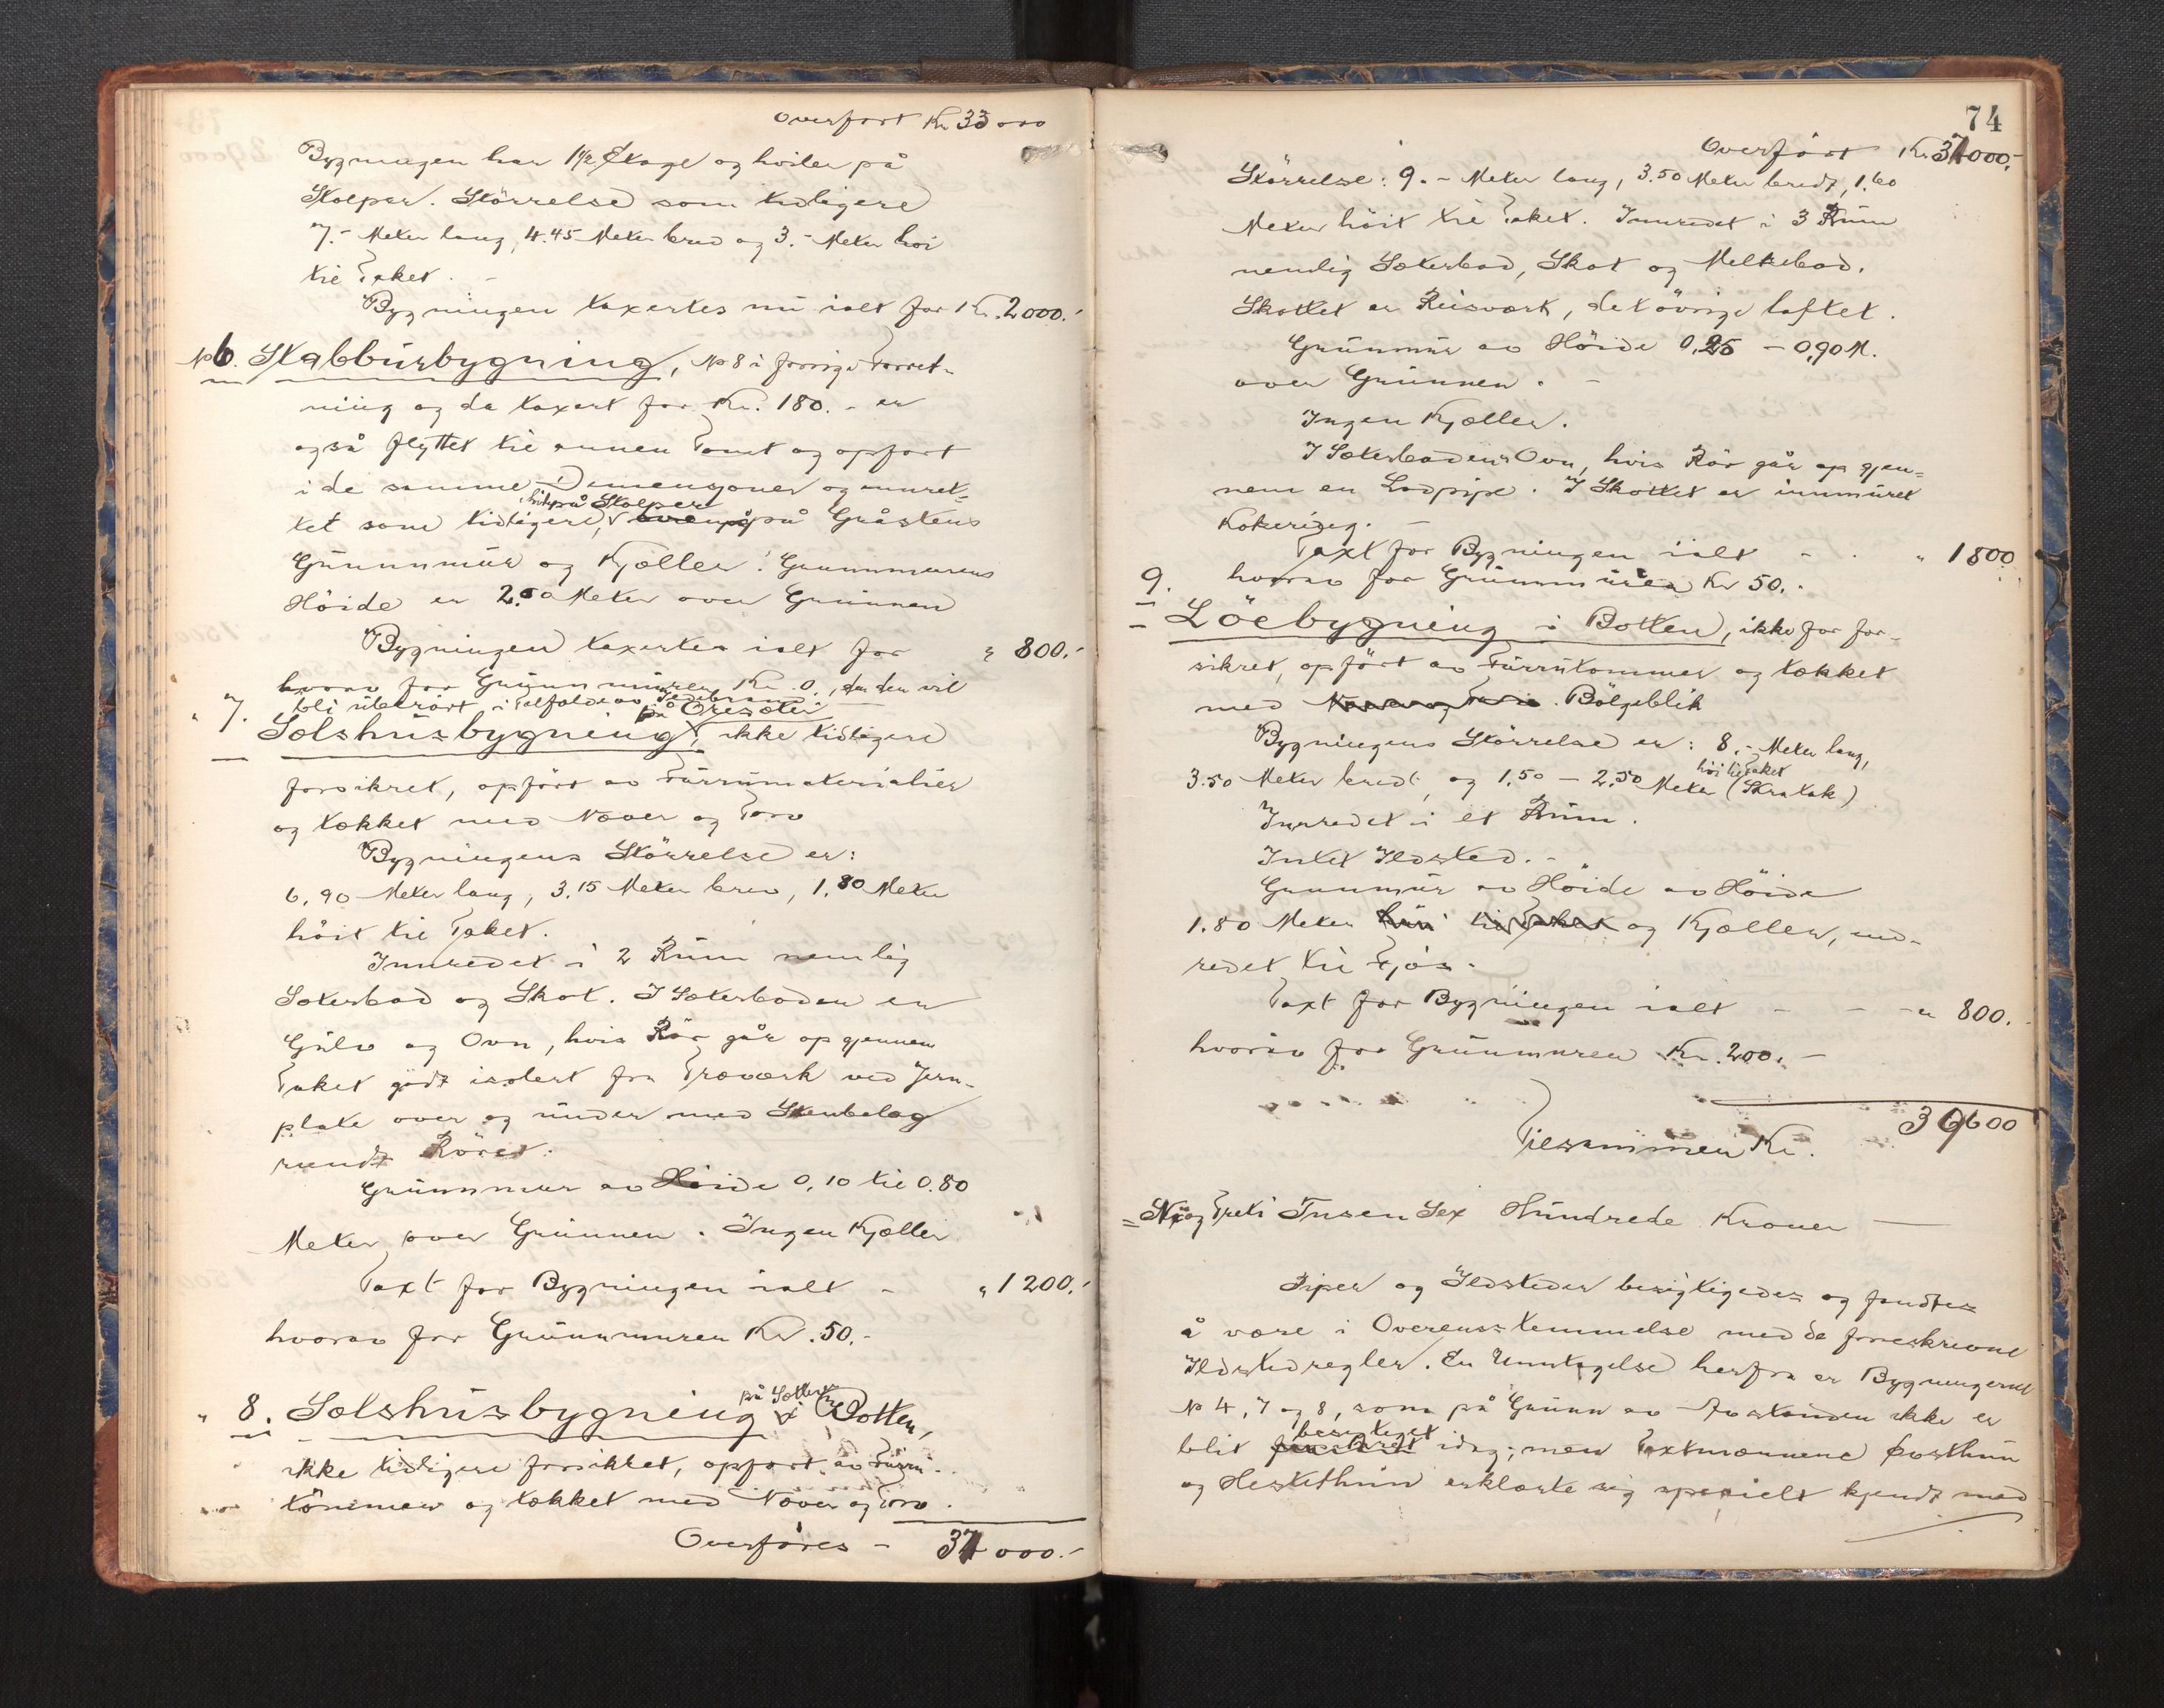 Overført Kr 33000
Bygningen har 1 1/2 Etage og hviler på
Stolper. Störrelse som tidligere
7.- Meter lang, 4.45 Meter bred og 3.- Meter høi
til Taket. -
Bygningen taxertes nu ialt for Kr. 2000.-
No 6. Stabbürsbygning, No 8 i forrige Forret-
ning og da taxert for Kr. 180.- er
også flyttet til annen Tomt og opført
i de samme Dimensjoner og innret-
på Stolper
tet som tidligere, på Gråstens
Grünnmür og Kjæller. Grunnmurens
Höide er 2.50 Meter over Grunnen
Bygningen taxertes ialt for " 800.-
hvorav for Grünnmüren Kr. 0, da den vil
bli uberørt i Tilfælde av Ildebrand.
på Oresæter
" 7. Selshüsbygning, ikke tidligere
forsikret, opført av Fürrümaterialier
og tækket med Næver og Torv
Bygningens Störrelse er:
6,90 Meter lang, 3.15 Meter bred, 1.80 Meter
höit til Taket.
Innredet i 2 Rüm nemlig
Seterbod og Skot. I Seterboden er
Gülv og Ovn, hvis Rör går op gjennem
Taket godt isolert fra Træværk ved Jern-
plate over og ünder med Stenbelag
rundt Röret.
Grünnmur av Höide 0,10 til 0.80
Meter over Grünnen. Ingen Kjæller
Taxt for Bygningen ialt - " 1200.-
hvorav for Grünnmuren Kr. 50.-
på Sætteren
" 8. Selshüsbygning i Botten,
ikke tidligere forsikret, opført av Fürrü-
tömmer og tækket med Næver og Torv.
Overføres - 37000.-
74
Overført Kr. 37000.-
Störrelse: 9.- Meter lang, 3.50 Meter bredt, 1.60
Meter höit til Taket. Innredet i 3 Rüm
nemlig Seterbod, Skot og Melkebod.
Skottet er Reisværk, det övrige laftet.
Grünmür av Höide 0,25 - 0,90 M.
over Grünnen. -
Ingen Kjæller.
I Seterboden Ovn, hvis Rör går op gjen-
nem en Lodpipe. I Skottet er innmüret
Taxt for Bygningen ialt - - " 1800
hvorav for Grünnmüren Kr 50.-
9. Löebygning i Botten, ikke før for-
sikret, opført av Fürrütömmer og tækket
med Næver og Torv. Bölgeblik
Bygningens Störrelse er: 8.- Meter lang,
høi til Taket
3.50 Meter bredt, og 1.50 - 2.50 Meter (Skratak)
Innredet i et Rüm.
Intet Ildsted. -
Grunnmür av Höide av Höide
1.80 Meter høi til Taket og Kjæller, inn-
redet til Fjös.
Taxt for Bygningen ialt - - - " 800.
hvorav for Grünmuren Kr. 200.-
Tilsammen Kr. 39600
= Ni og Treti Tusen Sex Hündrede Kroner
Piper og Ildsteder besigtigedes og fandtes
å være i Overensstemmelse med de foreskrevne
Ildstedregler. En Unntagelse herfra er Bygningerne
No 4, 7 og 8, som på Grünn av Avstanden ikke er
besigtiget
blit idag; men Taxtmennene
og erklærte sig specielt kjendt med